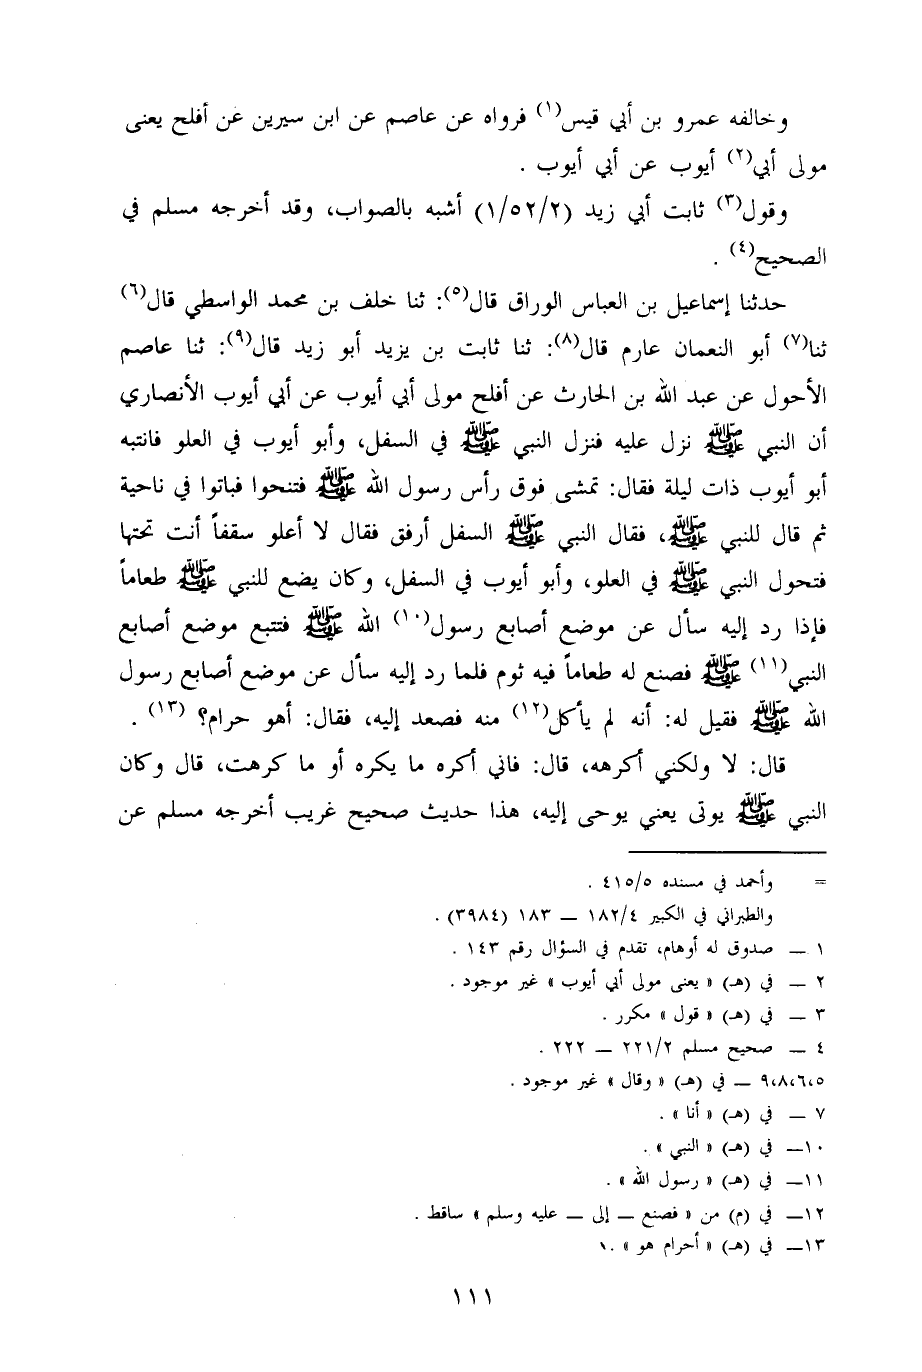 وخالفه عمرو بن أبي قيس(١) فرواه عن عاصم عن ابن سيرين عن أفلح يعنى
مولى أبي(٢) أيوب عن أبي أيوب .
وقول(٣) ثابت أبي زيد (١/٥٢/٢) أشبه بالصواب، وقد أخرجه مسلم في
الصحيح(٤) .
حدثنا إسماعيل بن العباس الوراق قال(٥): ثنا خلف بن محمد الواسطي قال(٦)
ثنا(٧) أبو النعمان عارم قال(٨): ثنا ثابت بن يزيد أبو زيد قال(٩): ثنا عاصم
الأحول عن عبد الله بن الحارث عن أفلح مولى أبي أيوب عن أبي أيوب الأنصاري
أن النبي ﷺ نزل عليه فنزل النبي ﷺ في السفل، وأبو أيوب في العلو فانتبه
أبو أيوب ذات ليلة فقال: تمشى فوق رأس رسول الله ﷺ فتنحوا فباتوا في ناحية
ثم قال للنبي ﷺ، فقال النبي ﷺ السفل أرفق فقال لا أعلو سقفاً أنت تحتها
فتحول النبي ﷺ في العلو، وأبو أيوب في السفل، وكان يضع للنبي ﷺ طعاماً
فإذا رد إليه سأل عن موضع أصابع رسول(١٠) الله ﷺ فتتبع موضع أصابع
النبي(١١) ﷺ فصنع له طعاماً فيه ثوم فلما رد إليه سأل عن موضع أصابع رسول
الله ﷺ فقيل له: أنه لم يأكل(١٢) منه فصعد إليه، فقال: أهو حرام؟ (١٣) .
قال: لا ولكني أكرهه، قال: فاني أكره ما يكره أو ما كرهت، قال وكان
النبي ﷺ يوتى يعني يوحى إليه، هذا حديث صحيح غريب أخرجه مسلم عن
= وأحمد في مسنده ٤١٥/٥ .
والطبراني في الكبير ١٨٢/٤ ــ ١٨٣ (٣٩٨٤) .
١ ــ صدوق له أوهام، تقدم في السؤال رقم ١٤٣ .
٢ ــ في (هـ) « يعنى مولى أبي أيوب » غير موجود .
٣ ــ في (هـ) « قول » مكرر .
٤ ــ صحيح مسلم ٢٢١/٢ ــ ٢٢٢ .
٩،٨،٦،٥ ــ في (هـ) « وقال » غير موجود .
٧ ــ في (هـ) « أنا » .
١٠ــ في (هـ) « النبي » .
١١ــ في (هـ) « رسول الله » .
١٢ــ في (م) من « فصنع ــ إلى ــ عليه وسلم » ساقط .
١٣ــ في (هـ) « أحرام هو » .١
١١١